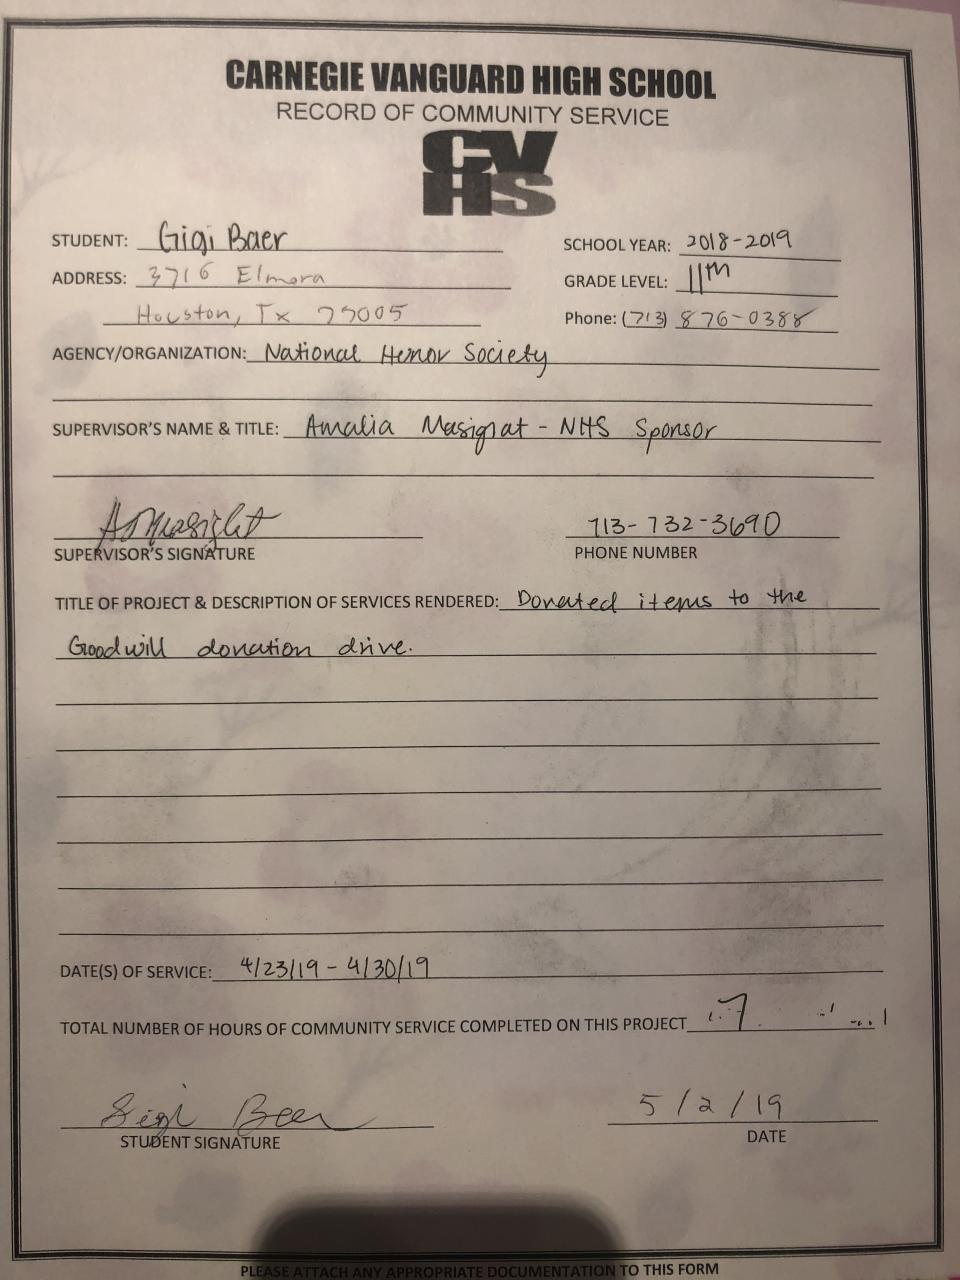 CARNEGIE VANGUARD HIGH SCHOOL
RECORD OF COMMUNITY SERVICE
CV
HS
STUDENT: Gigi Baer
SCHOOL YEAR: 2018-2019
ADDRESS: 3716 Elmora
GRADE LEVEL: 11th
Houston, Tx 77005
Phone: (713) 876-0388
AGENCY/ORGANIZATION: National Honor Society
SUPERVISOR'S NAME & TITLE: Amalia Masignat - NHS Sponsor
713-732-3690
SUPERVISOR'S SIGNATURE
PHONE NUMBER
TITLE OF PROJECT & DESCRIPTION OF SERVICES RENDERED: Donated items to the
Goodwill donation drive.
DATE(S) OF SERVICE: 4/23/19 - 4/30/19
TOTAL NUMBER OF HOURS OF COMMUNITY SERVICE COMPLETED ON THIS PROJECT 7
Gigi Baer
5/2/19
STUDENT SIGNATURE
DATE
PLEASE ATTACH ANY APPROPRIATE DOCUMENTATION TO THIS FORM